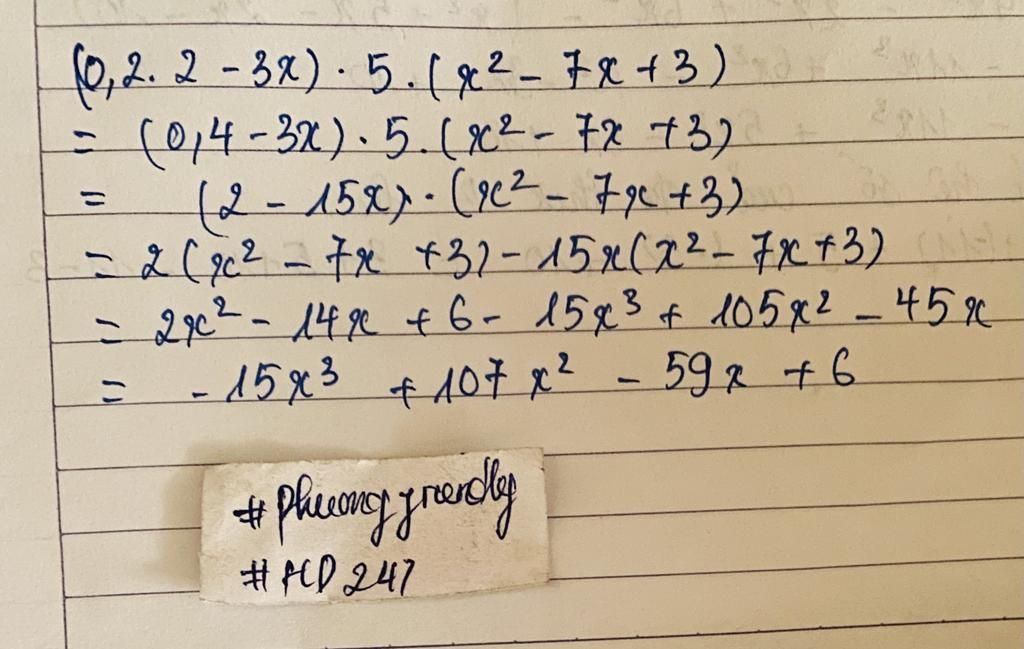 (0,2. 2 - 3x) . 5. (x² - 7x + 3)
= (0,4 - 3x) . 5. (x² - 7x + 3)
= (2 - 15x) . (x² - 7x + 3)
= 2 (x² - 7x + 3) - 15x (x² - 7x + 3)
= 2x² - 14x + 6 - 15x³ + 105x² - 45x
= - 15x³ + 107x² - 59x + 6
# Phuongfriendly
# 247